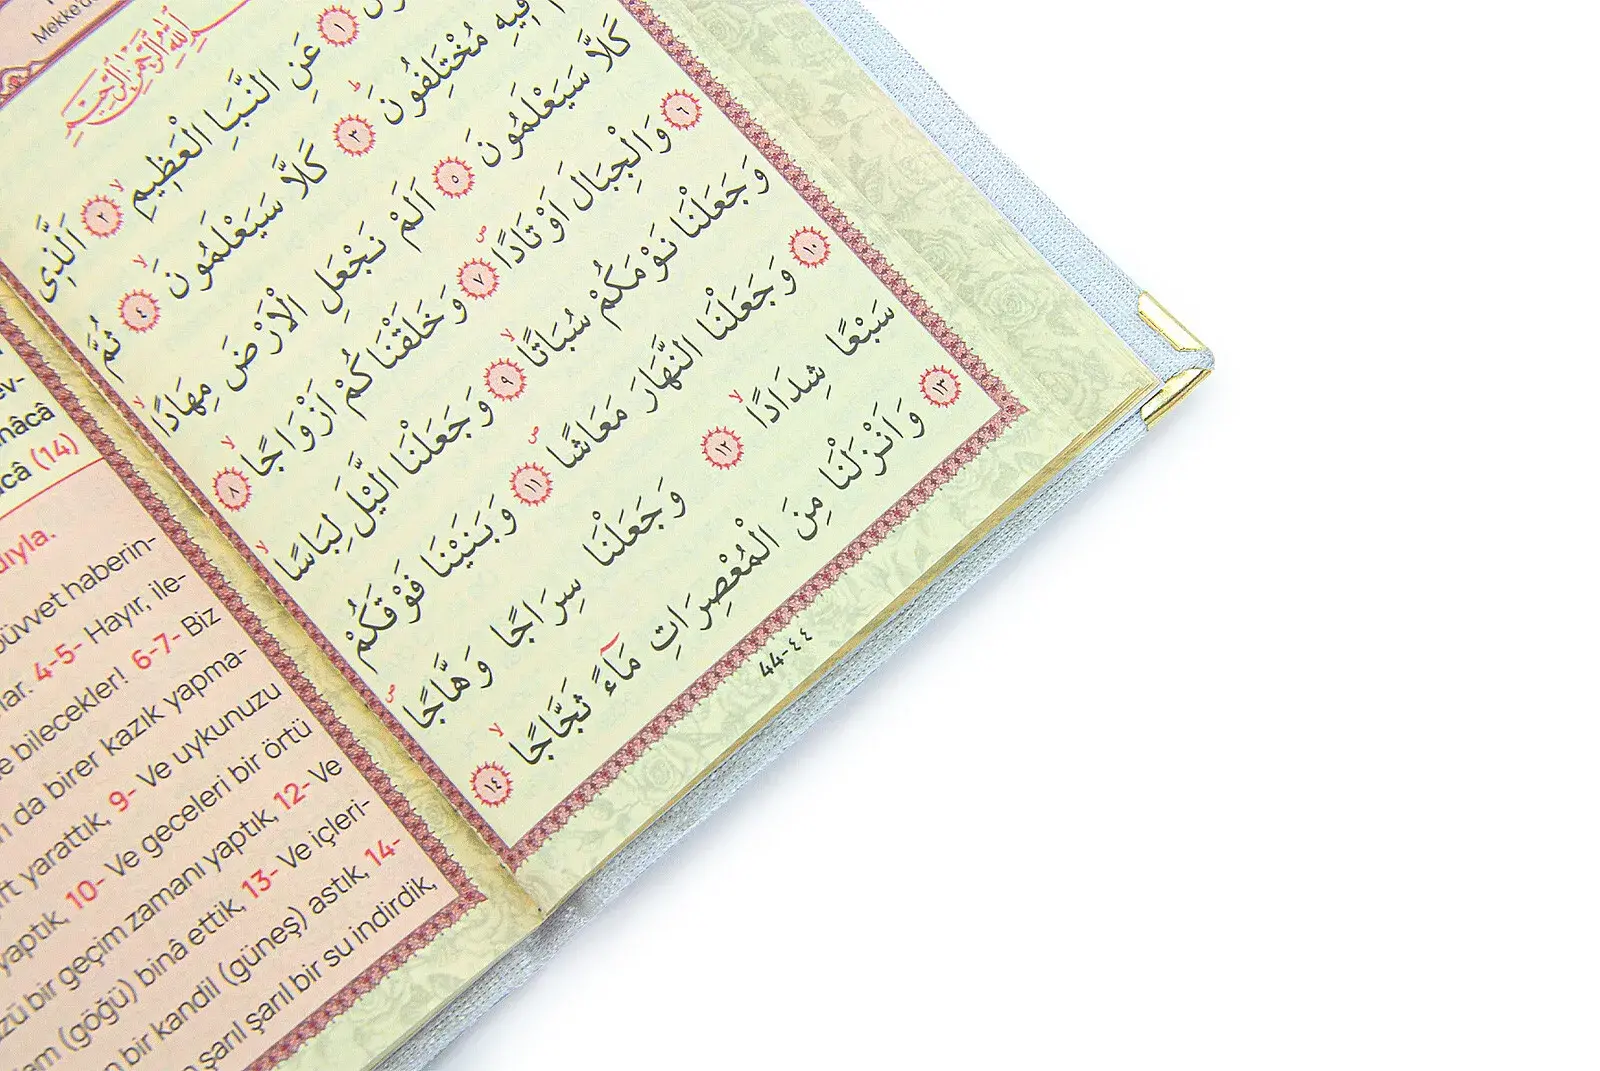 اللهِ الرَّحْمٰنِ الرَّحِيمِ
١ عَنِ النَّبَأِ الْعَظِيمِ ٢ اَلَّذِى
فِيهِ مُخْتَلِفُونَ ٣ كَلَّا سَيَعْلَمُونَ ٤ ثُمَّ
كَلَّا سَيَعْلَمُونَ ٥ اَلَمْ نَجْعَلِ الْاَرْضَ مِهَادًا
٦ وَالْجِبَالَ اَوْتَادًا ٧ وَخَلَقْنَاكُمْ اَزْوَاجًا ٨
وَجَعَلْنَا نَوْمَكُمْ سُبَاتًا ٩ وَجَعَلْنَا الَّيْلَ لِبَاسًا
١٠ وَجَعَلْنَا النَّهَارَ مَعَاشًا ١١ وَبَنَيْنَا فَوْقَكُمْ
سَبْعًا شِدَادًا ١٢ وَجَعَلْنَا سِرَاجًا وَهَّاجًا
١٣ وَاَنْزَلْنَا مِنَ الْمُعْصِرَاتِ مَٓاءً ثَجَّاجًا ١٤
44-٤٤
Mekke
(14)
haberin-
4-5- Hayır, ile-
bilecekler! 6-7- Biz
da birer kazık yapma-
yarattık, 9- Ve uykunuzu
yaptık, 10- Ve geceleri bir örtü
bir geçim zamanı yaptık, 12- Ve
(göğü) binâ ettik, 13- Ve içleri-
bir kandil (güneş) astık, 14-
şarıl şarıl bir su indirdik,